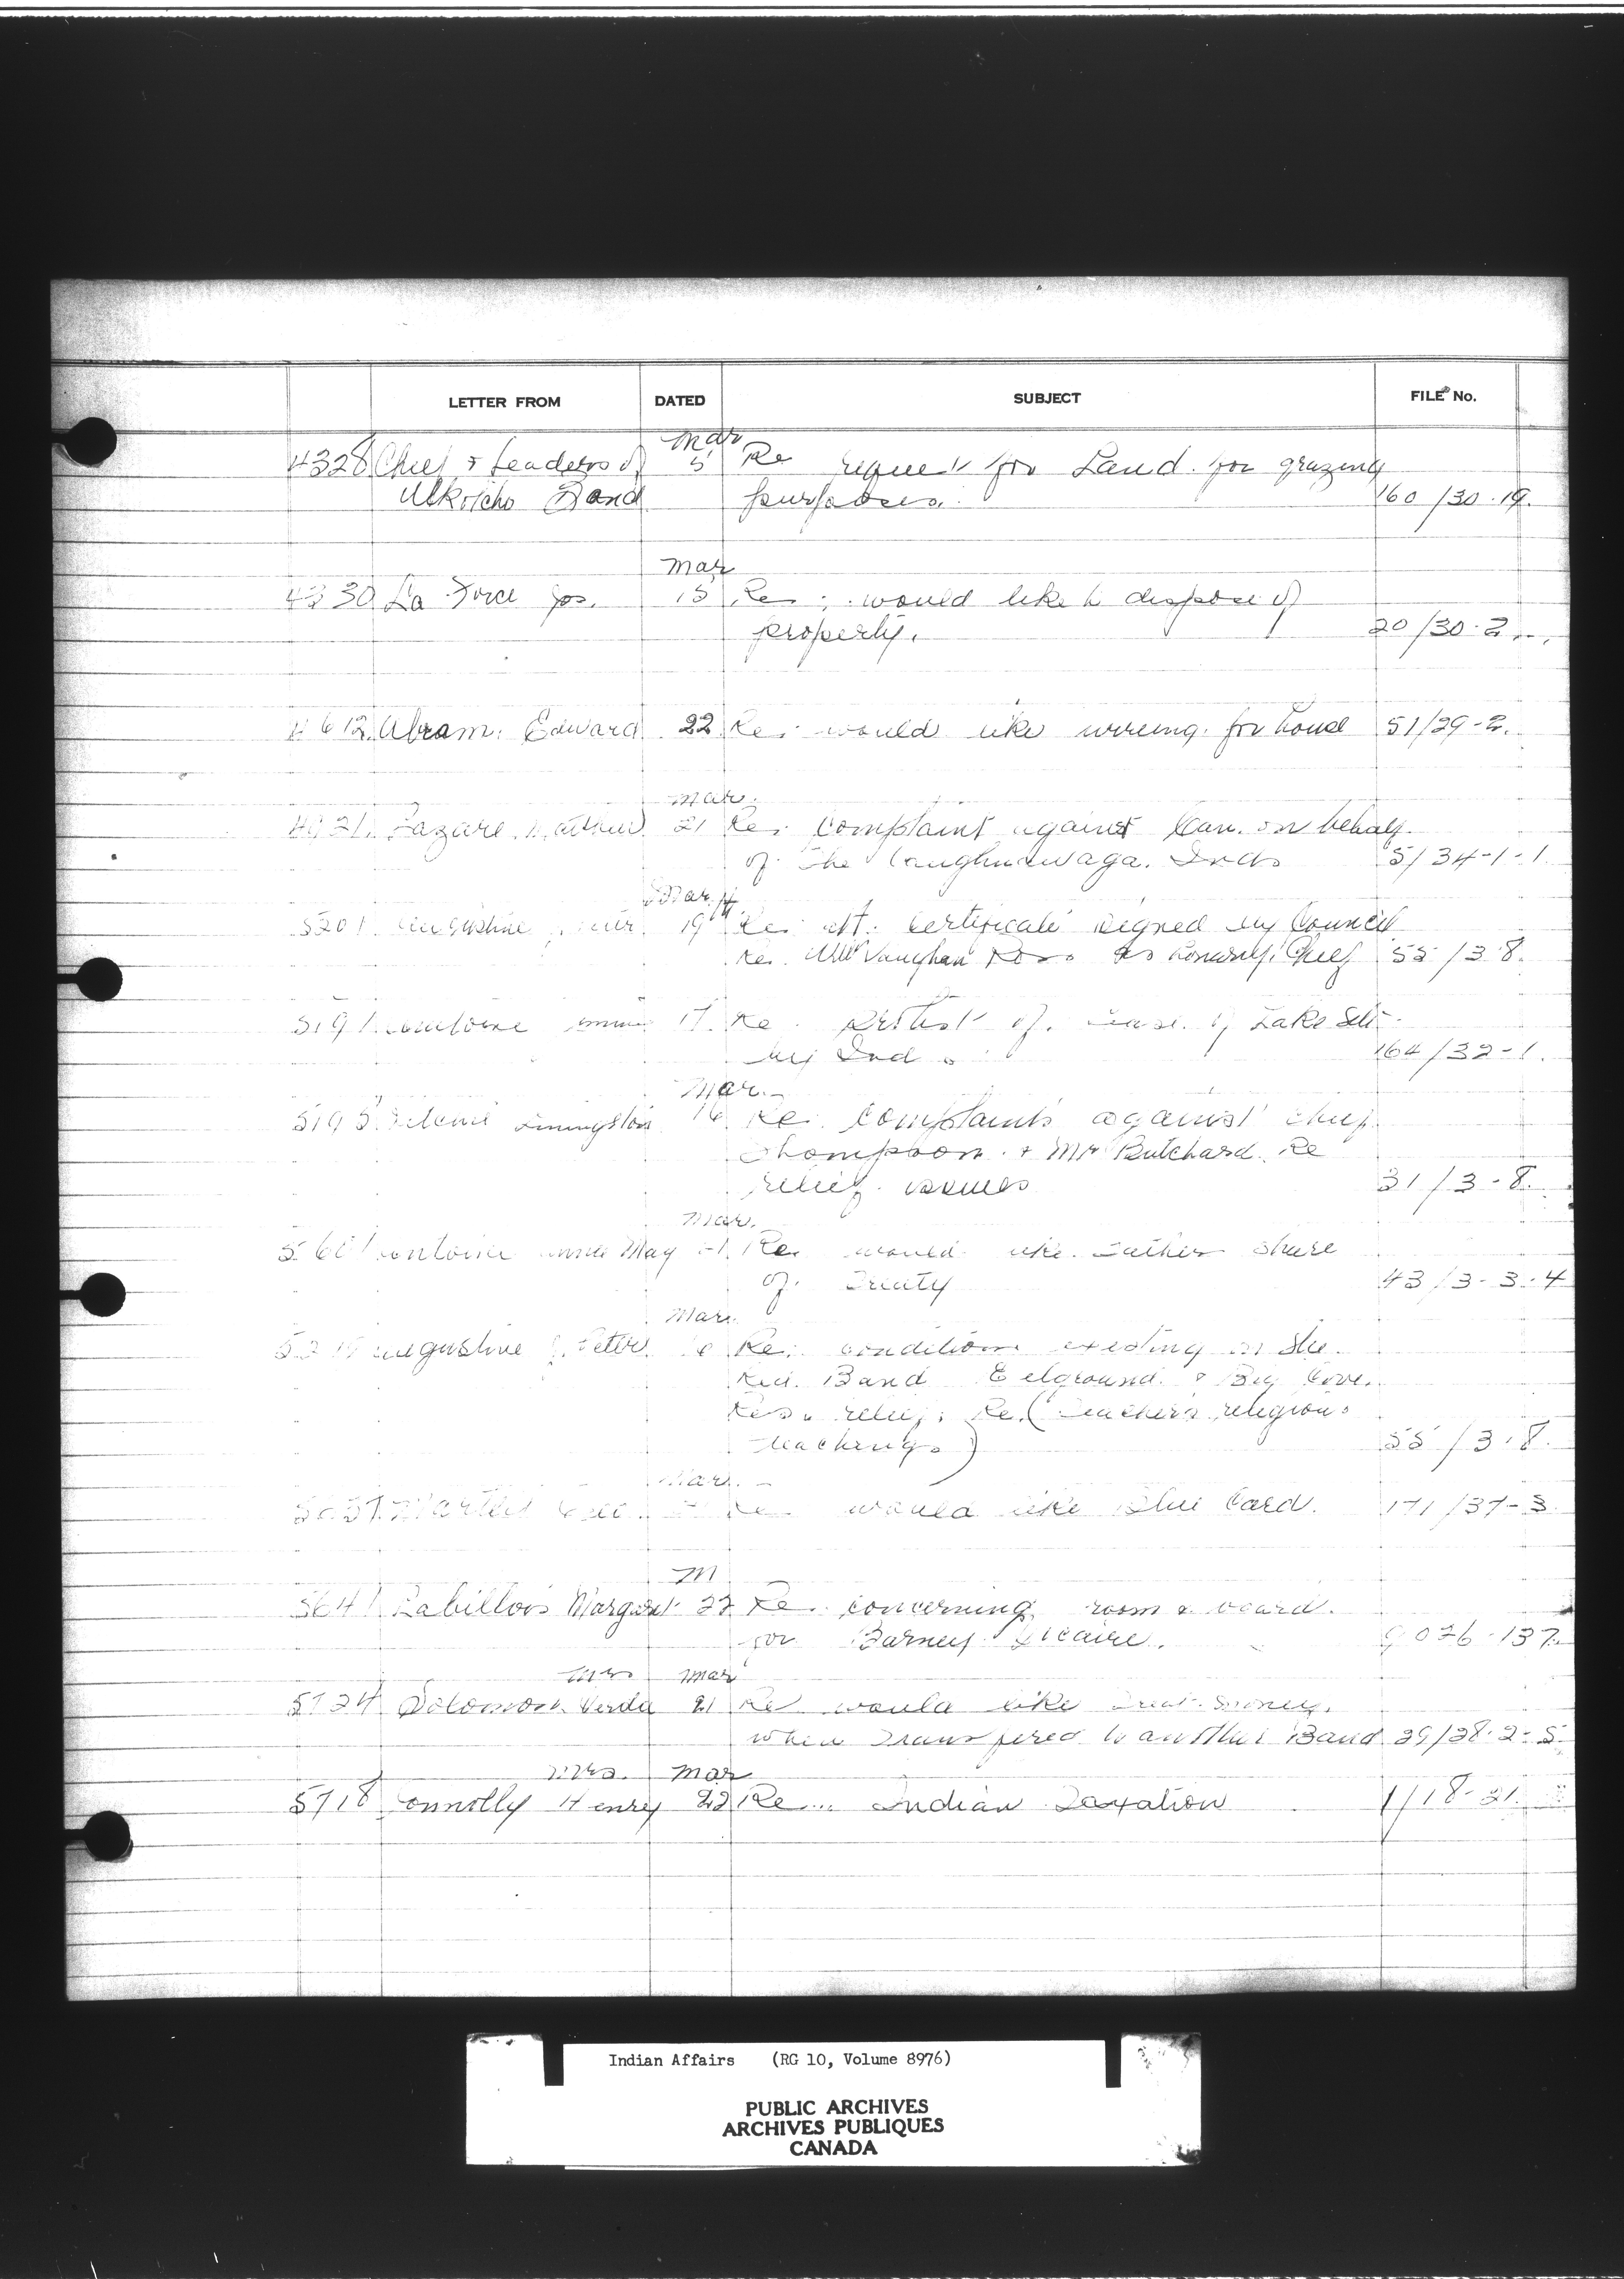 LETTER FROM DATED SUBJECT FILE No.
Mar
4328 Chief & Leaders of 5 Re request for Land for grazing
Ulkatcho Band purposes. 160/30-19.
Mar
4330 La Force Jos. 15 Re: would like to dispose of
property. 20/30-2
4612 Abram, Edward 22 Re: would like wireing for house 51/29-2.
Mar.
4921 Lazare, 21 Re: Complaint against Can. on behalf
of the Caughnawaga Inds 5/34-1-1
Mar.
5201 Augustine 19th Re: att. Certificate signed by Council
Re. Vaughan Ross as honorary Chief 55/3-8.
5191 Antoine 17. Re. protest of lease of Lake
by Inds 164/32-1.
Mar.
5195 Livingston 16 Re: Complaints against Chief
Thompson & Mr Butchard. Re
relief issues 31/3-8.
Mar.
Antoine Annie May Re. would like Father share
of Treaty 43/3-3-4
Mar.
Augustine J. Peter Re: conditions existing on the
Red Band Eelground & Big Cove
Res. relief. Re. (Teachers religious
teachings) 55/3-8.
Mar.
Re would like Blue Card. 171/37-3
M
5641 Labillois Margaret 22 Re. concerning room & board.
for Barney 9026-137
Mrs Mar
5724 Solomon Verda 21 Re would like Treat. money.
when Transfered to another Band 39/28-2-5
Mrs. Mar
5718 Connolly Henry 22 Re... Indian Taxation 1/18-21
Indian Affairs (RG 10, Volume 8976)
PUBLIC ARCHIVES
ARCHIVES PUBLIQUES
CANADA